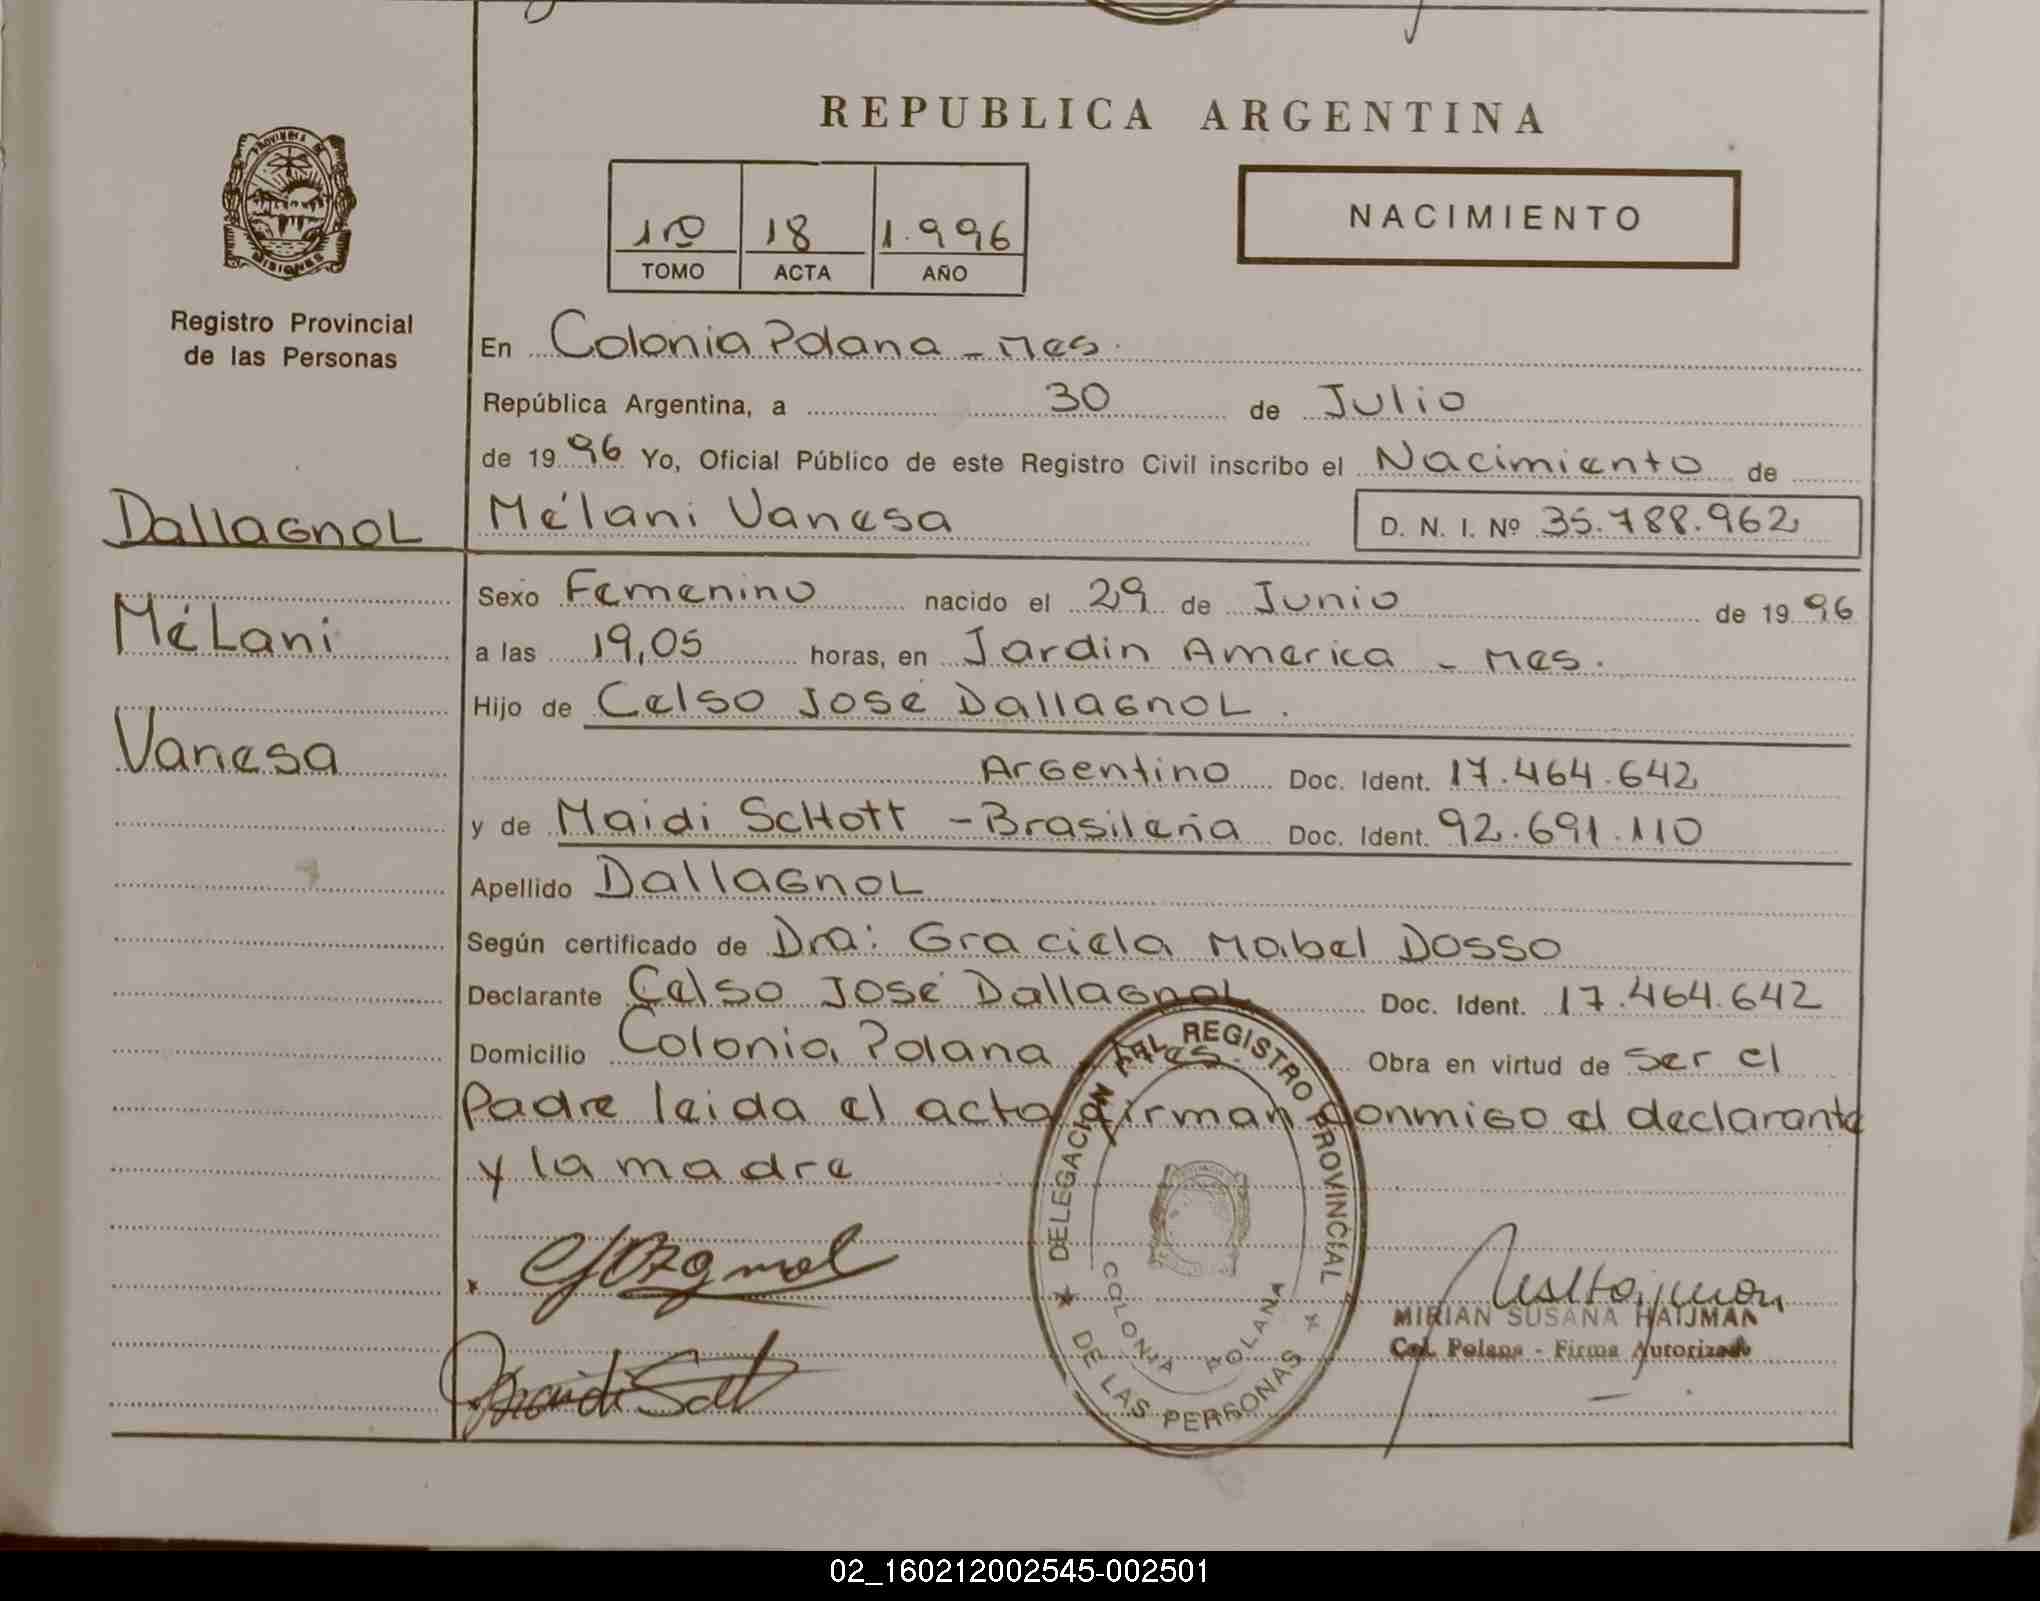 REPUBLICA ARGENTINA
PROVINCIA DE
MISIONES
Registro Provincial
de las Personas
10 18 1.996
TOMO ACTA AÑO
NACIMIENTO
En Colonia Polana - Mes.
República Argentina, a 30 de Julio
de 1996 Yo, Oficial Público de este Registro Civil inscribo el Nacimiento de
Mélani Vanesa D. N. I. Nº 35.788.962
Dallagnol
Mélani
Vanesa
Sexo Femenino nacido el 29 de Junio de 1996
a las 19,05 horas, en Jardin America - Mes.
Hijo de Celso José Dallagnol.
Argentino Doc. Ident. 17.464.642
y de Maidi Schott - Brasileña Doc. Ident. 92.691.110
Apellido Dallagnol
Según certificado de Dra: Graciela Mabel Dosso
Declarante Celso José Dallagnol Doc. Ident. 17.464.642
Domicilio Colonia Polana Mes. Obra en virtud de ser el
Padre leida el acta firman conmigo el declarante
y la madre
DELEGACION REGISTRO PROVINCIAL
DE LAS PERSONAS
COLONIA POLANA
MIRIAN SUSANA HAIJMAN
Col. Polana - Firma Autorizada
02_160212002545-002501